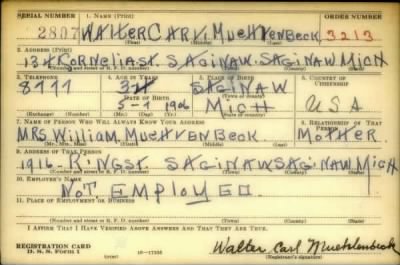 SERIAL NUMBER 1. NAME (Print) ORDER NUMBER
2807 WALTER CARL MUEHLENBECK 3213
2. ADDRESS (Print)
KORNELIA ST. SAGINAW SAGINAW MICH
3. TELEPHONE 4. AGE IN YEARS 5. PLACE OF BIRTH 6. COUNTRY OF CITIZENSHIP
34 SAGINAW
DATE OF BIRTH
1906 MICH USA
7. NAME OF PERSON WHO WILL ALWAYS KNOW YOUR ADDRESS 8. RELATIONSHIP OF THAT PERSON
MRS. William MUEHLENBECK MOTHER
(Mr., Mrs., Miss) (First) (Middle) (Last)
9. ADDRESS OF THAT PERSON
1916 KING ST SAGINAW SAGINAW MICH
(Number and street or R. F. D. number) (Town) (County) (State)
10. EMPLOYER'S NAME
NOT EMPLOYED
11. PLACE OF EMPLOYMENT OR BUSINESS
(Number and street or R. F. D. number) (Town) (County) (State)
I AFFIRM THAT I HAVE VERIFIED ABOVE ANSWERS AND THAT THEY ARE TRUE.
REGISTRATION CARD
D. S. S. Form 1 (over) Walter Carl Muehlenbeck
(Registrant's signature)